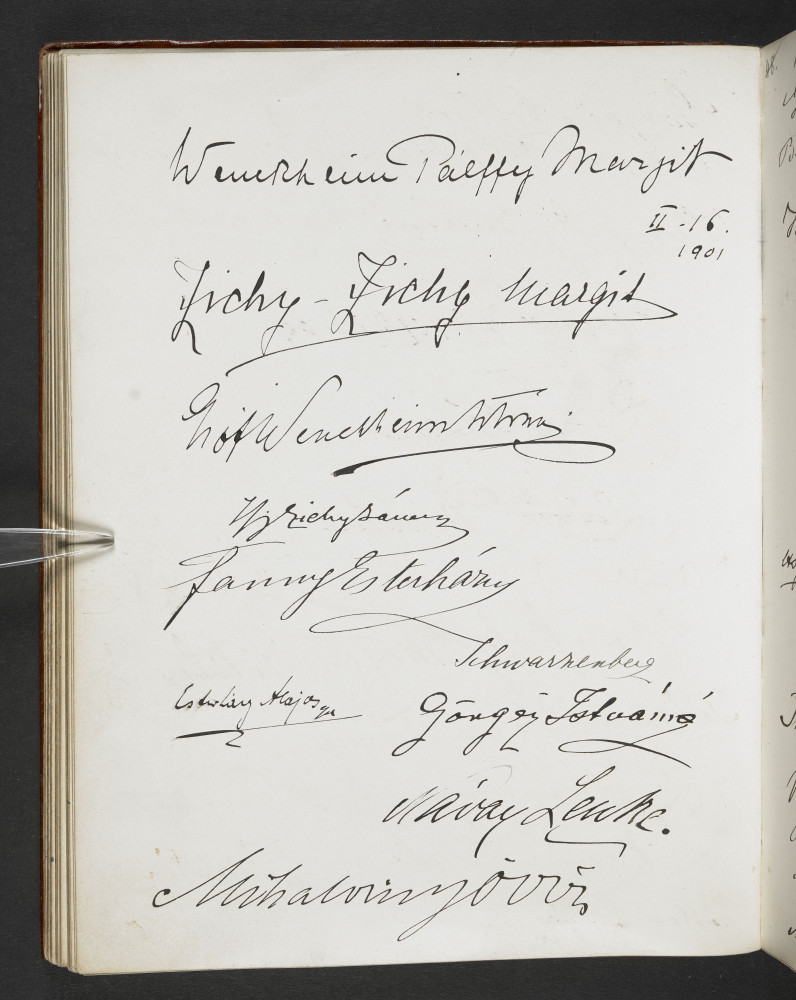 Wenckheim Pálffy Margit
II - 16.
1901
Zichy - Zichy Margit
Gróf Wenckheim István
Ifj Zichy János
Fanny Esterházy
Schwarzenberg
Esterházy Alajos
Görgey Istvánné
Návay Lenke.